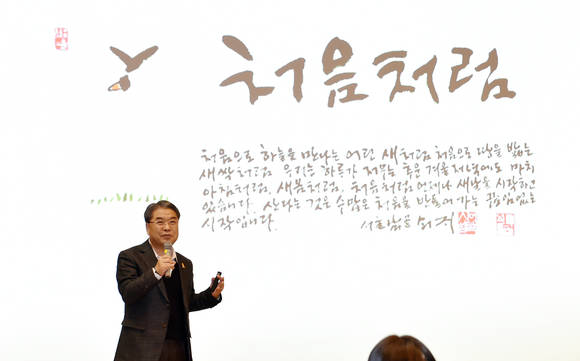 처음처럼
처음으로 하늘을 만나는 어린 새처럼 처음으로 땅을 밟는
새싹처럼 우리는 하루가 저무는 추운 겨울 저녁에도 마치
아침처럼, 새봄처럼, 처음처럼 언제나 새날을 시작하고
있습니다. 산다는 것은 수많은 처음을 만들어 가는 끊임없는
시작입니다.